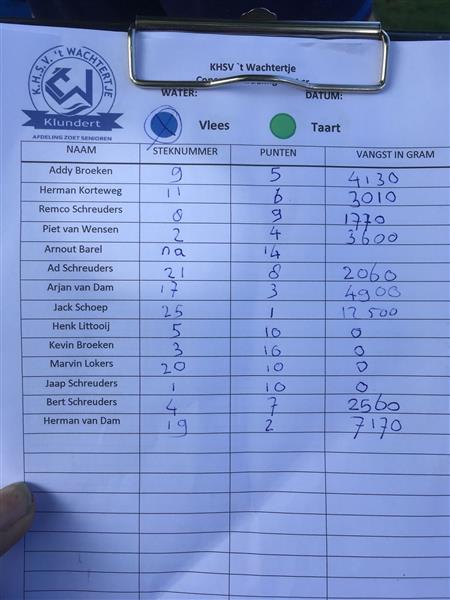 K.H.S.V. 't WACHTERTJE
Klundert
AFDELING ZOET SENIOREN
KHSV `t Wachtertje
WATER: DATUM:
Vlees Taart
NAAM STEKNUMMER PUNTEN VANGST IN GRAM
Addy Broeken 9 5 4130
Herman Korteweg 11 6 3010
Remco Schreuders 8 9 1770
Piet van Wensen 2 4 3600
Arnout Barel na 14
Ad Schreuders 21 8 2060
Arjan van Dam 17 3 4900
Jack Schoep 25 1 12500
Henk Littooij 5 10 0
Kevin Broeken 3 10 0
Marvin Lokers 20 10 0
Jaap Schreuders 1 10 0
Bert Schreuders 4 7 2560
Herman van Dam 19 2 7170